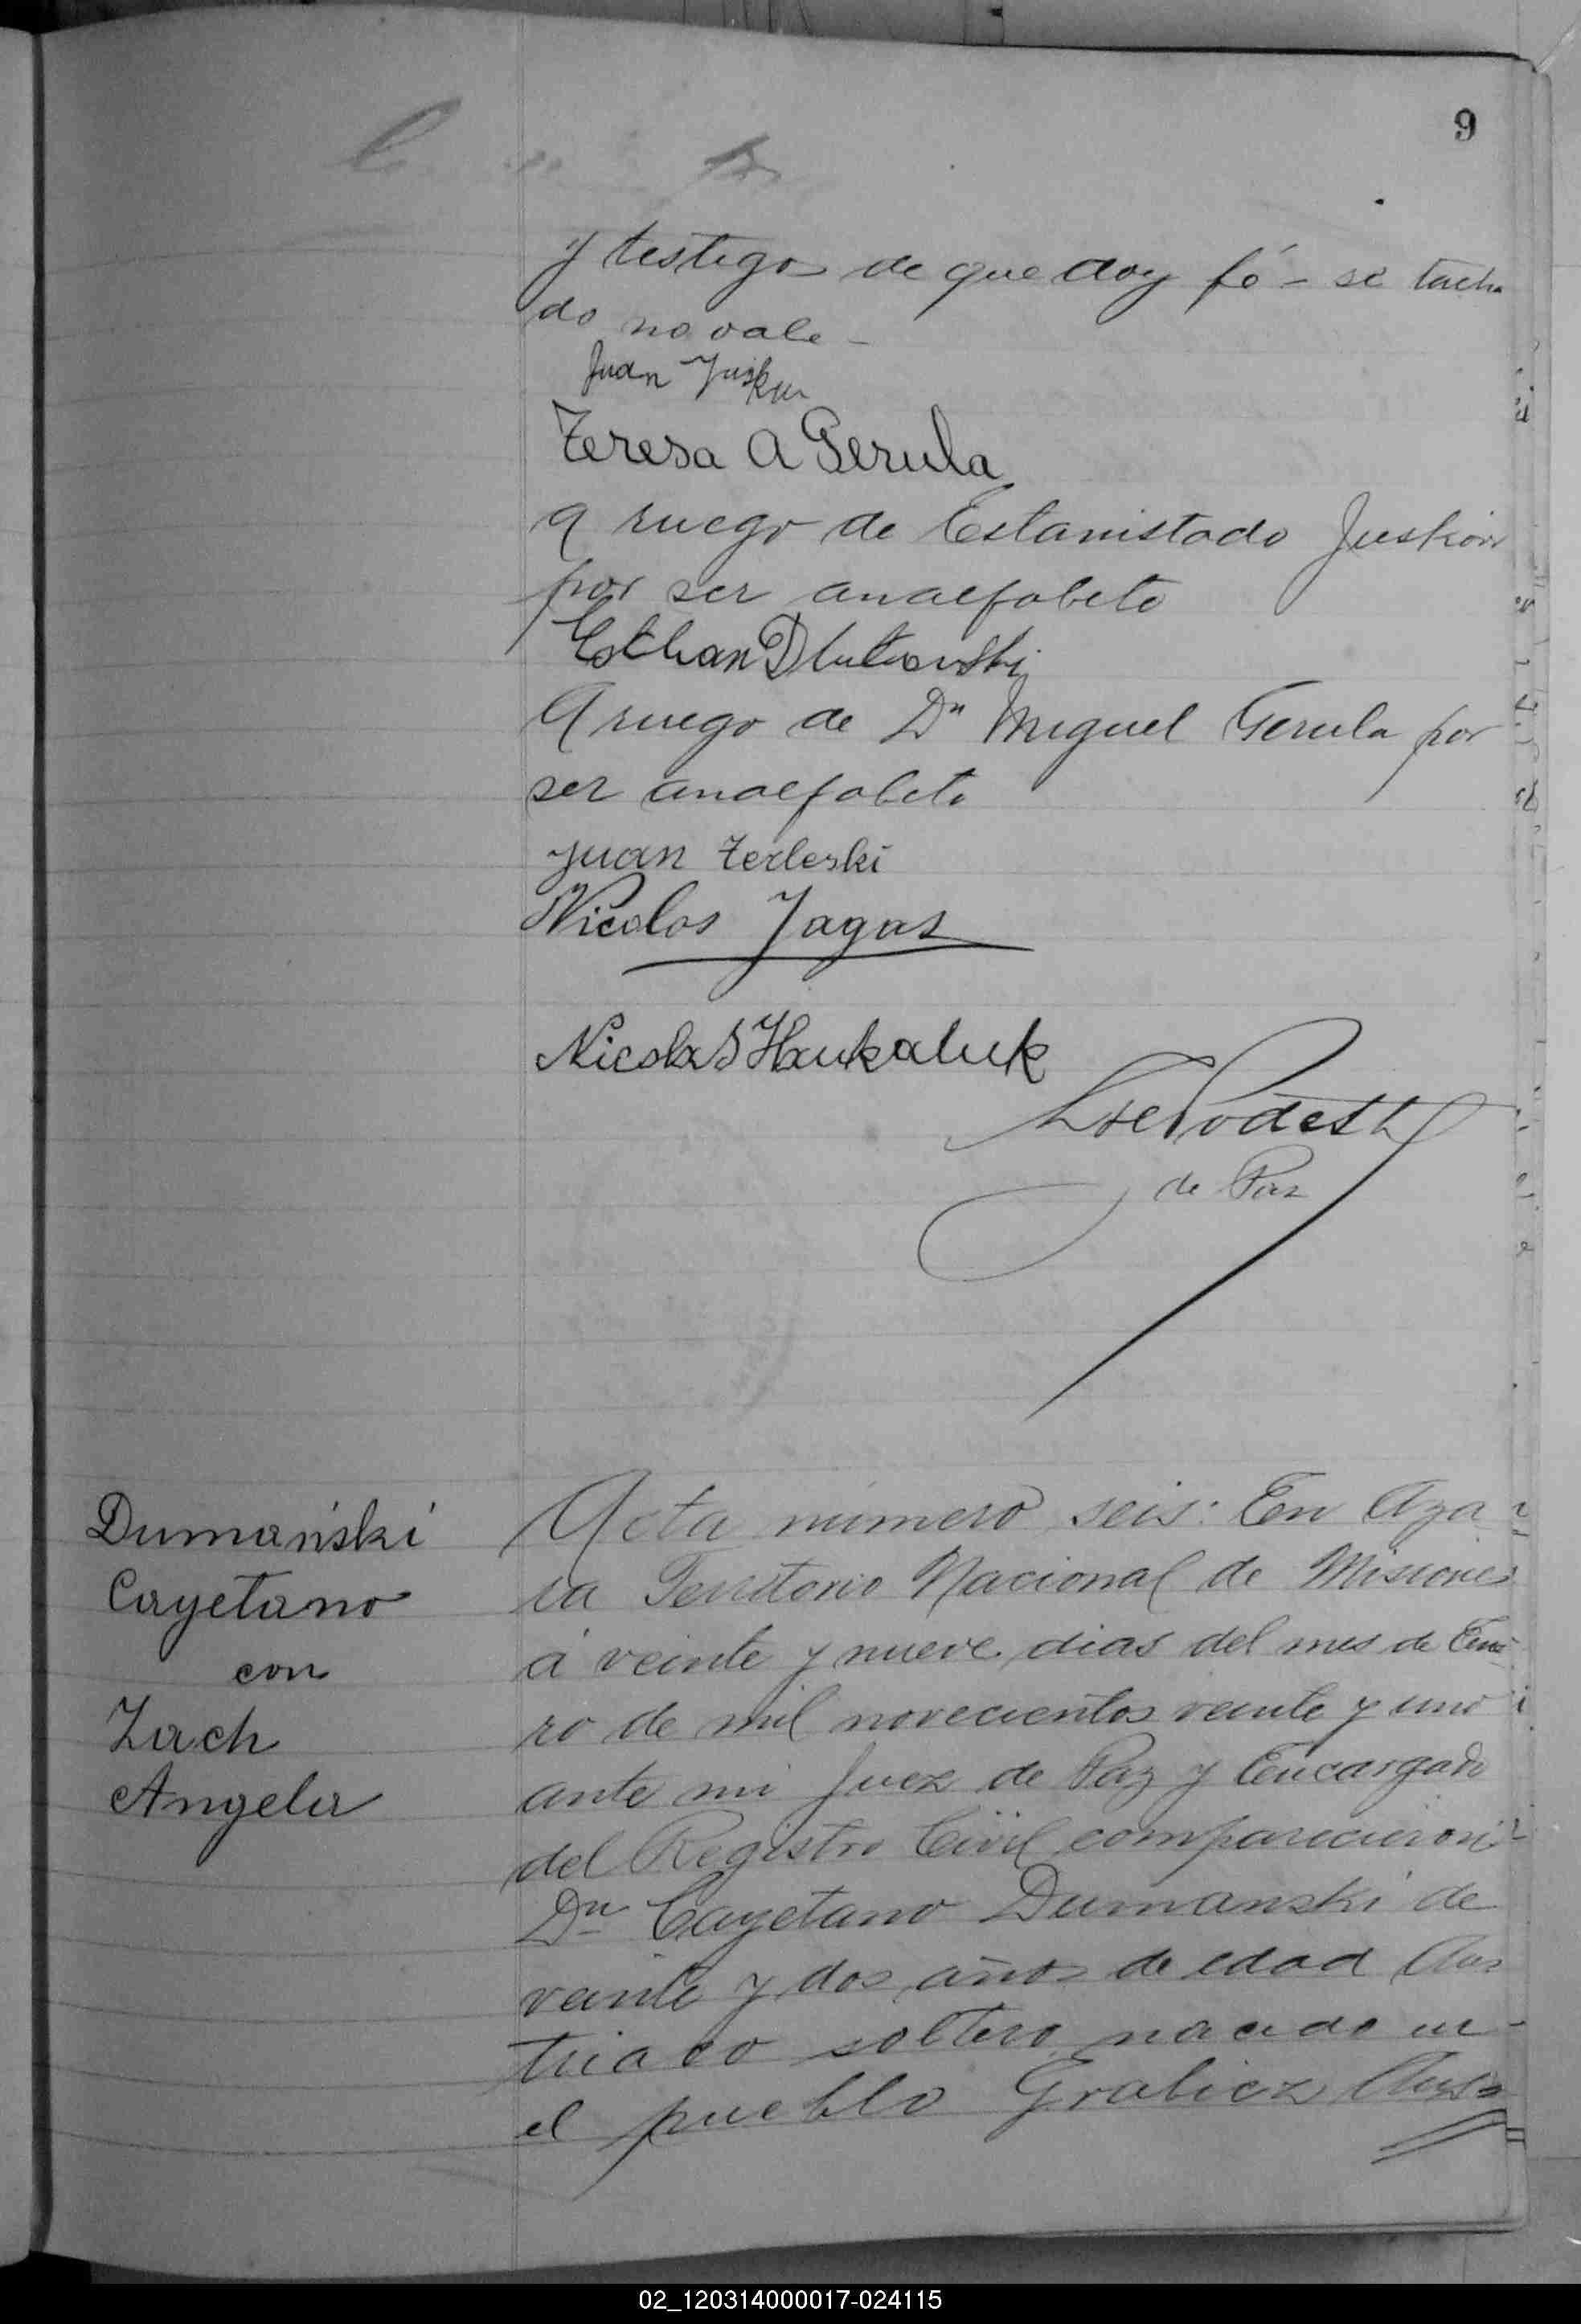 9
y testigos de que doy fé – se tacha
do no vale –
Juan Juskow
Teresa A Gerula
A ruego de Estanistado Juskow
por ser analfabeto
Esteban Dlutowski
A ruego de Dn Miguel Gerula por
ser analfabeto
Juan Zerleski
Nicolas Jagas
Nicolas Haukaluk
Podestá
de Paz
Dumański
Cayetano
con
Zach
Angela
Acta número seis: En Aza
ra Territorio Nacional de Misiones
á veinte y nueve dias del mes de Ene
ro de mil novecientos veinte y uno
ante mi Juez de Paz y Encargado
del Registro Civil comparecieron
Dn Cayetano Dumanski de
veinte y dos años de edad Aus
triaco soltero nacido en
el pueblo Grabicz Aus
02_120314000017-024115